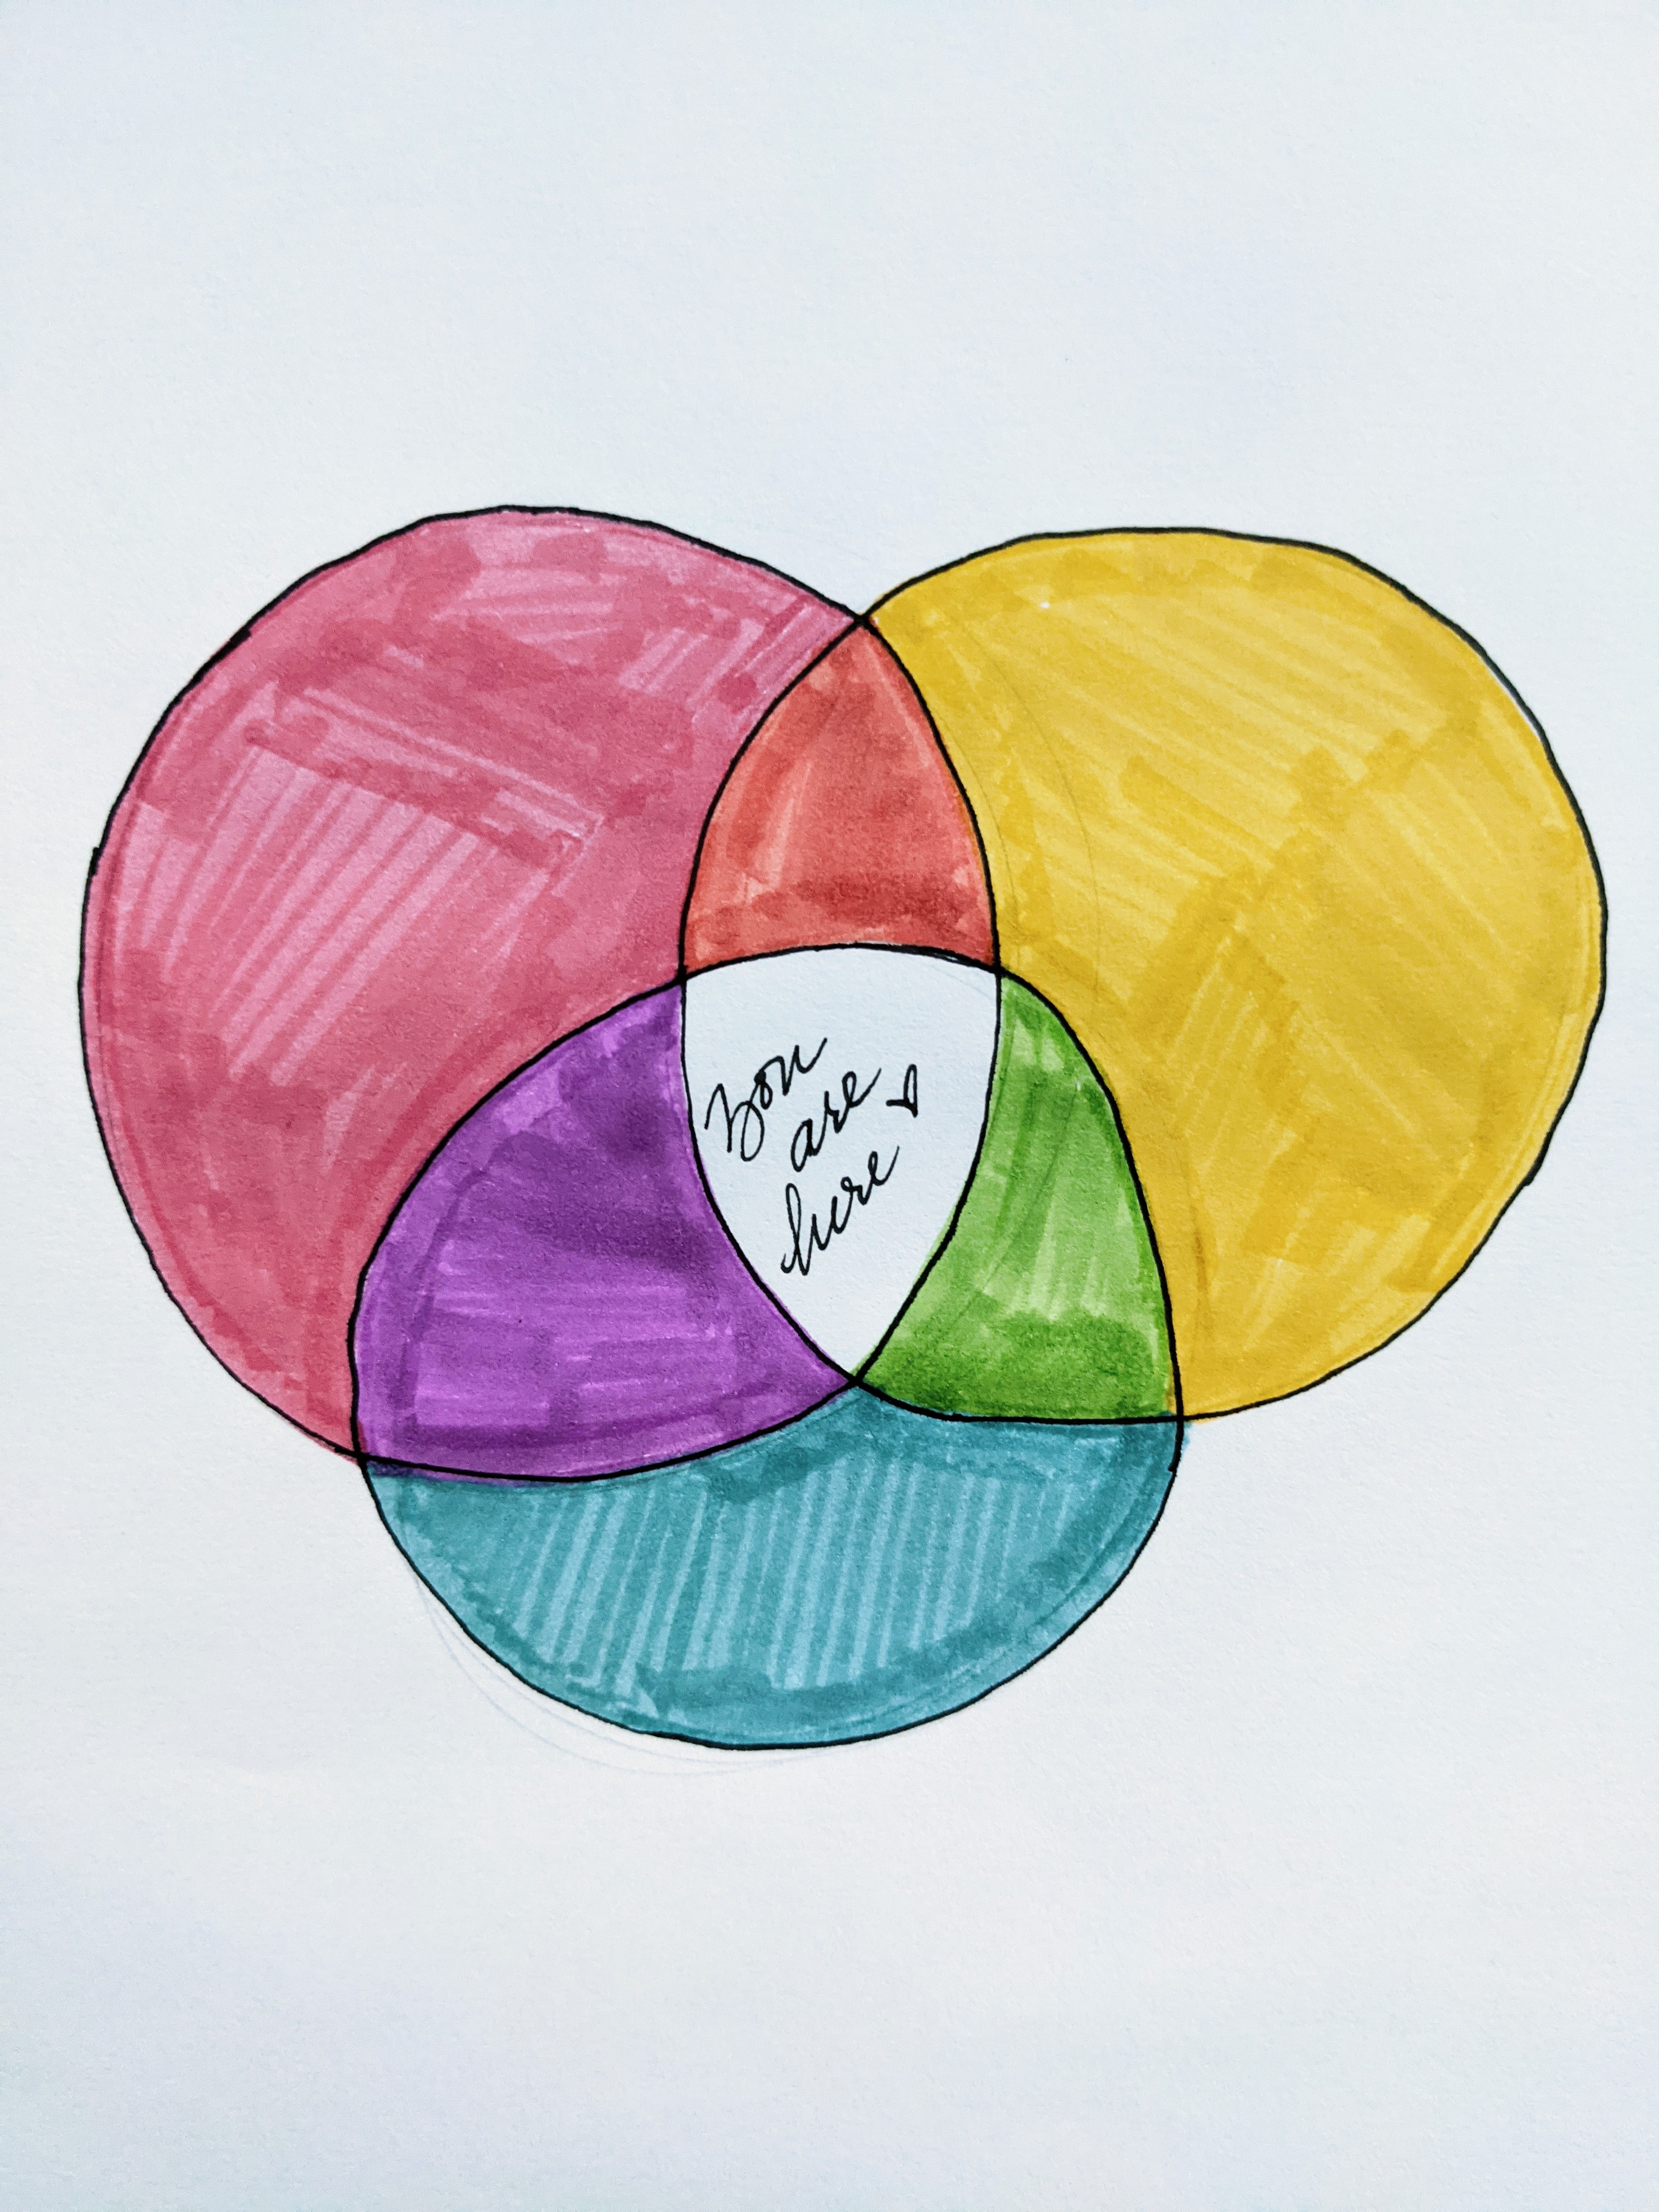 You
are
here